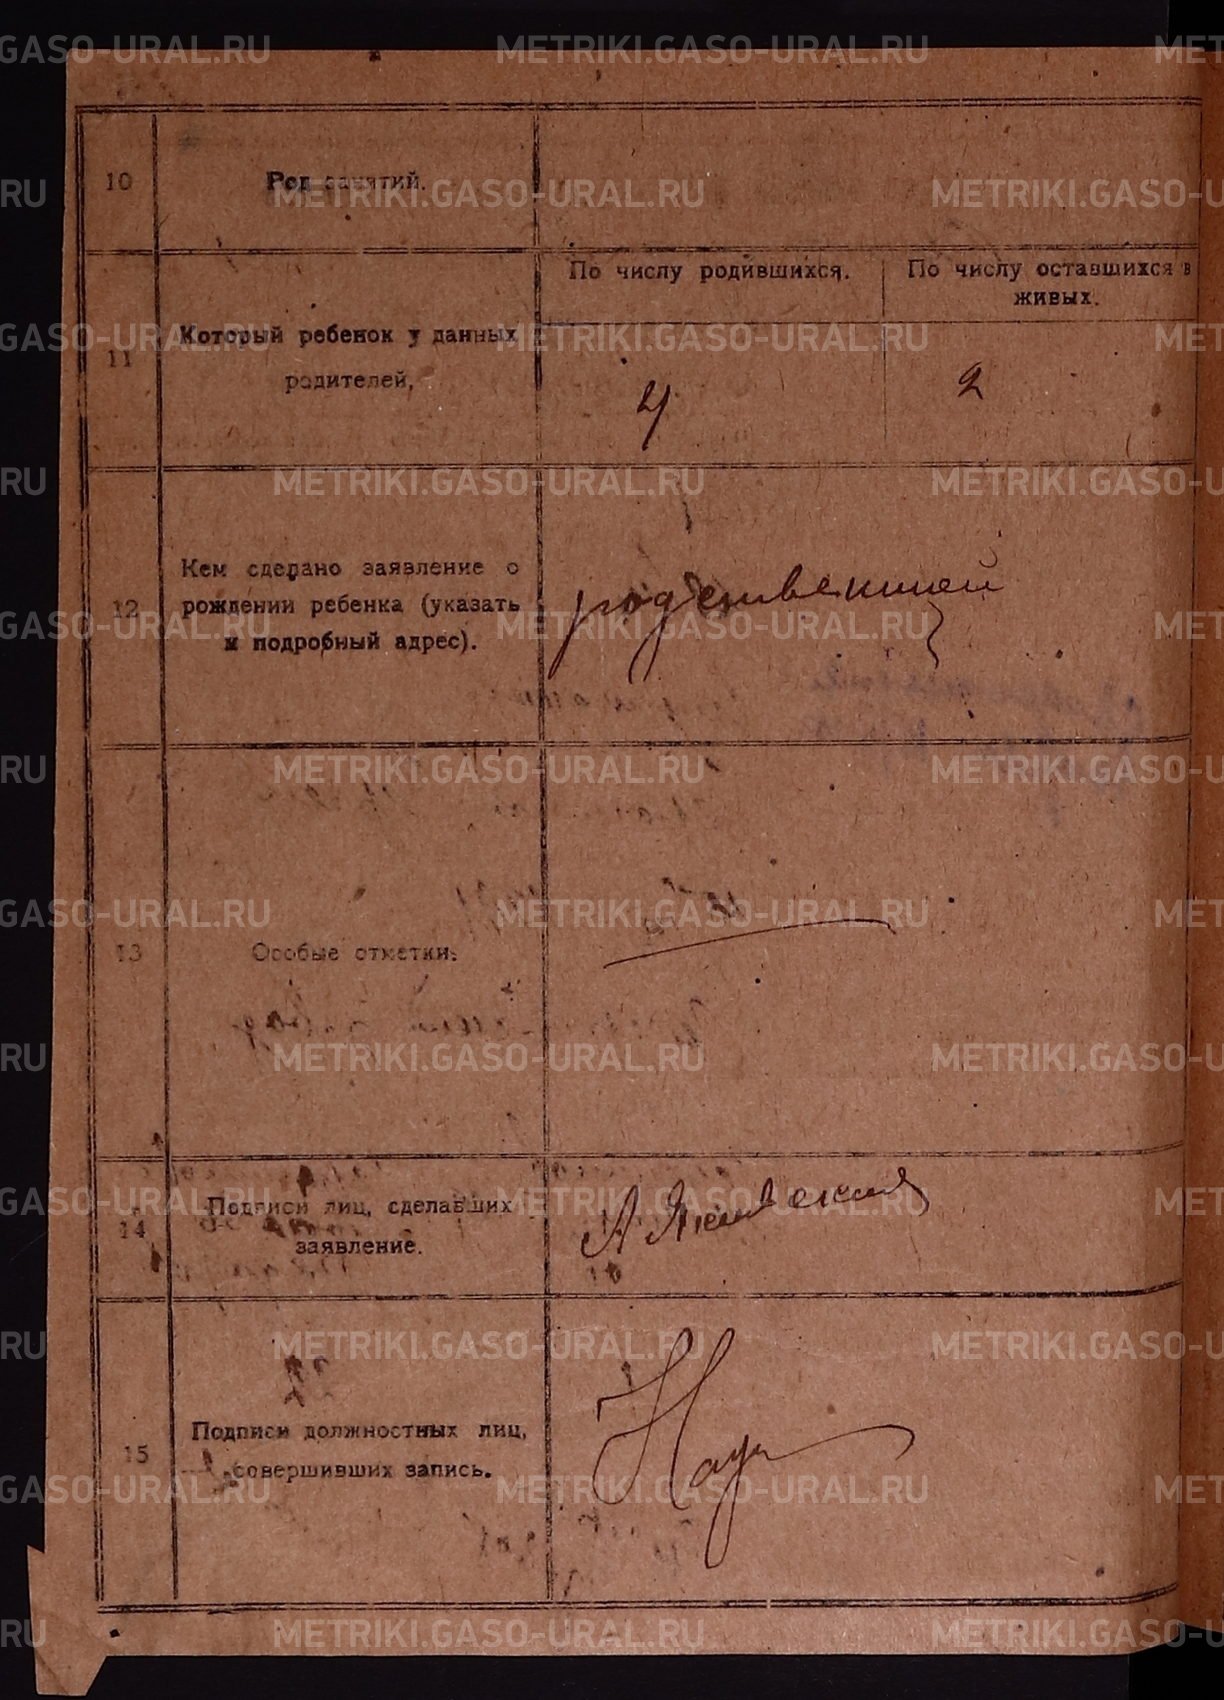 METRIKI.GASO-URAL.RU
10
Род занятий.
11
Который ребенок у данных
родителей,
По числу родившихся.
По числу оставшихся в
живых.
4
2
12
Кем сделано заявление о
рождении ребенка (указать
и подробный адрес).
13
Особые отметки.
14
Подписи лиц, сделавших
заявление.
15
Подписи должностных лиц,
совершивших запись.